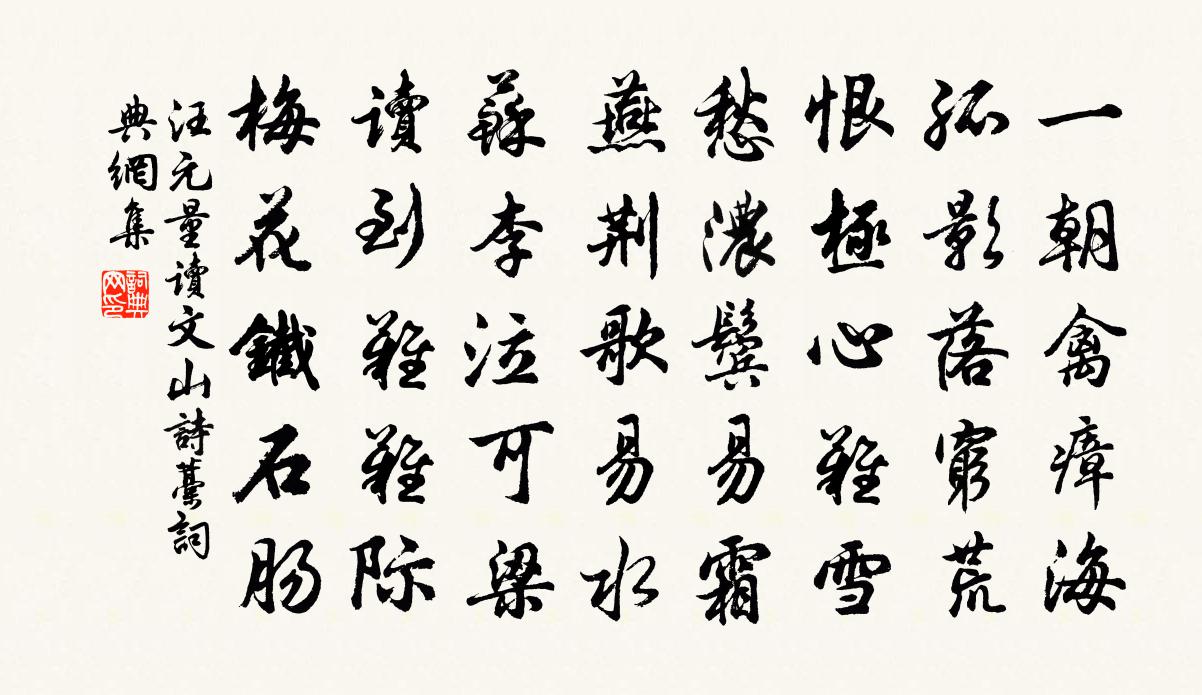 一朝禽瘴海
孤影落穷荒
恨極心難雪
愁濃鬓易霜
燕荆歌易水
蘇李泣河梁
讀到難難际
梅花鐵石肠
汪元量讀文山詩藁詞
典網集
詞典
网印